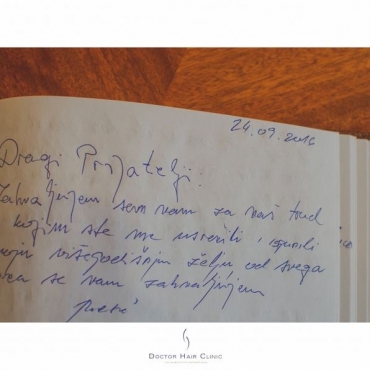 24.09.2016
Dragi Prijatelji.
Zahvaljujem sam vam za vaš trud
kojim ste me usrećili, ispunili
moju višegodišnju želju od svega
srca se vam zahvaljujem
DOCTOR HAIR CLINIC